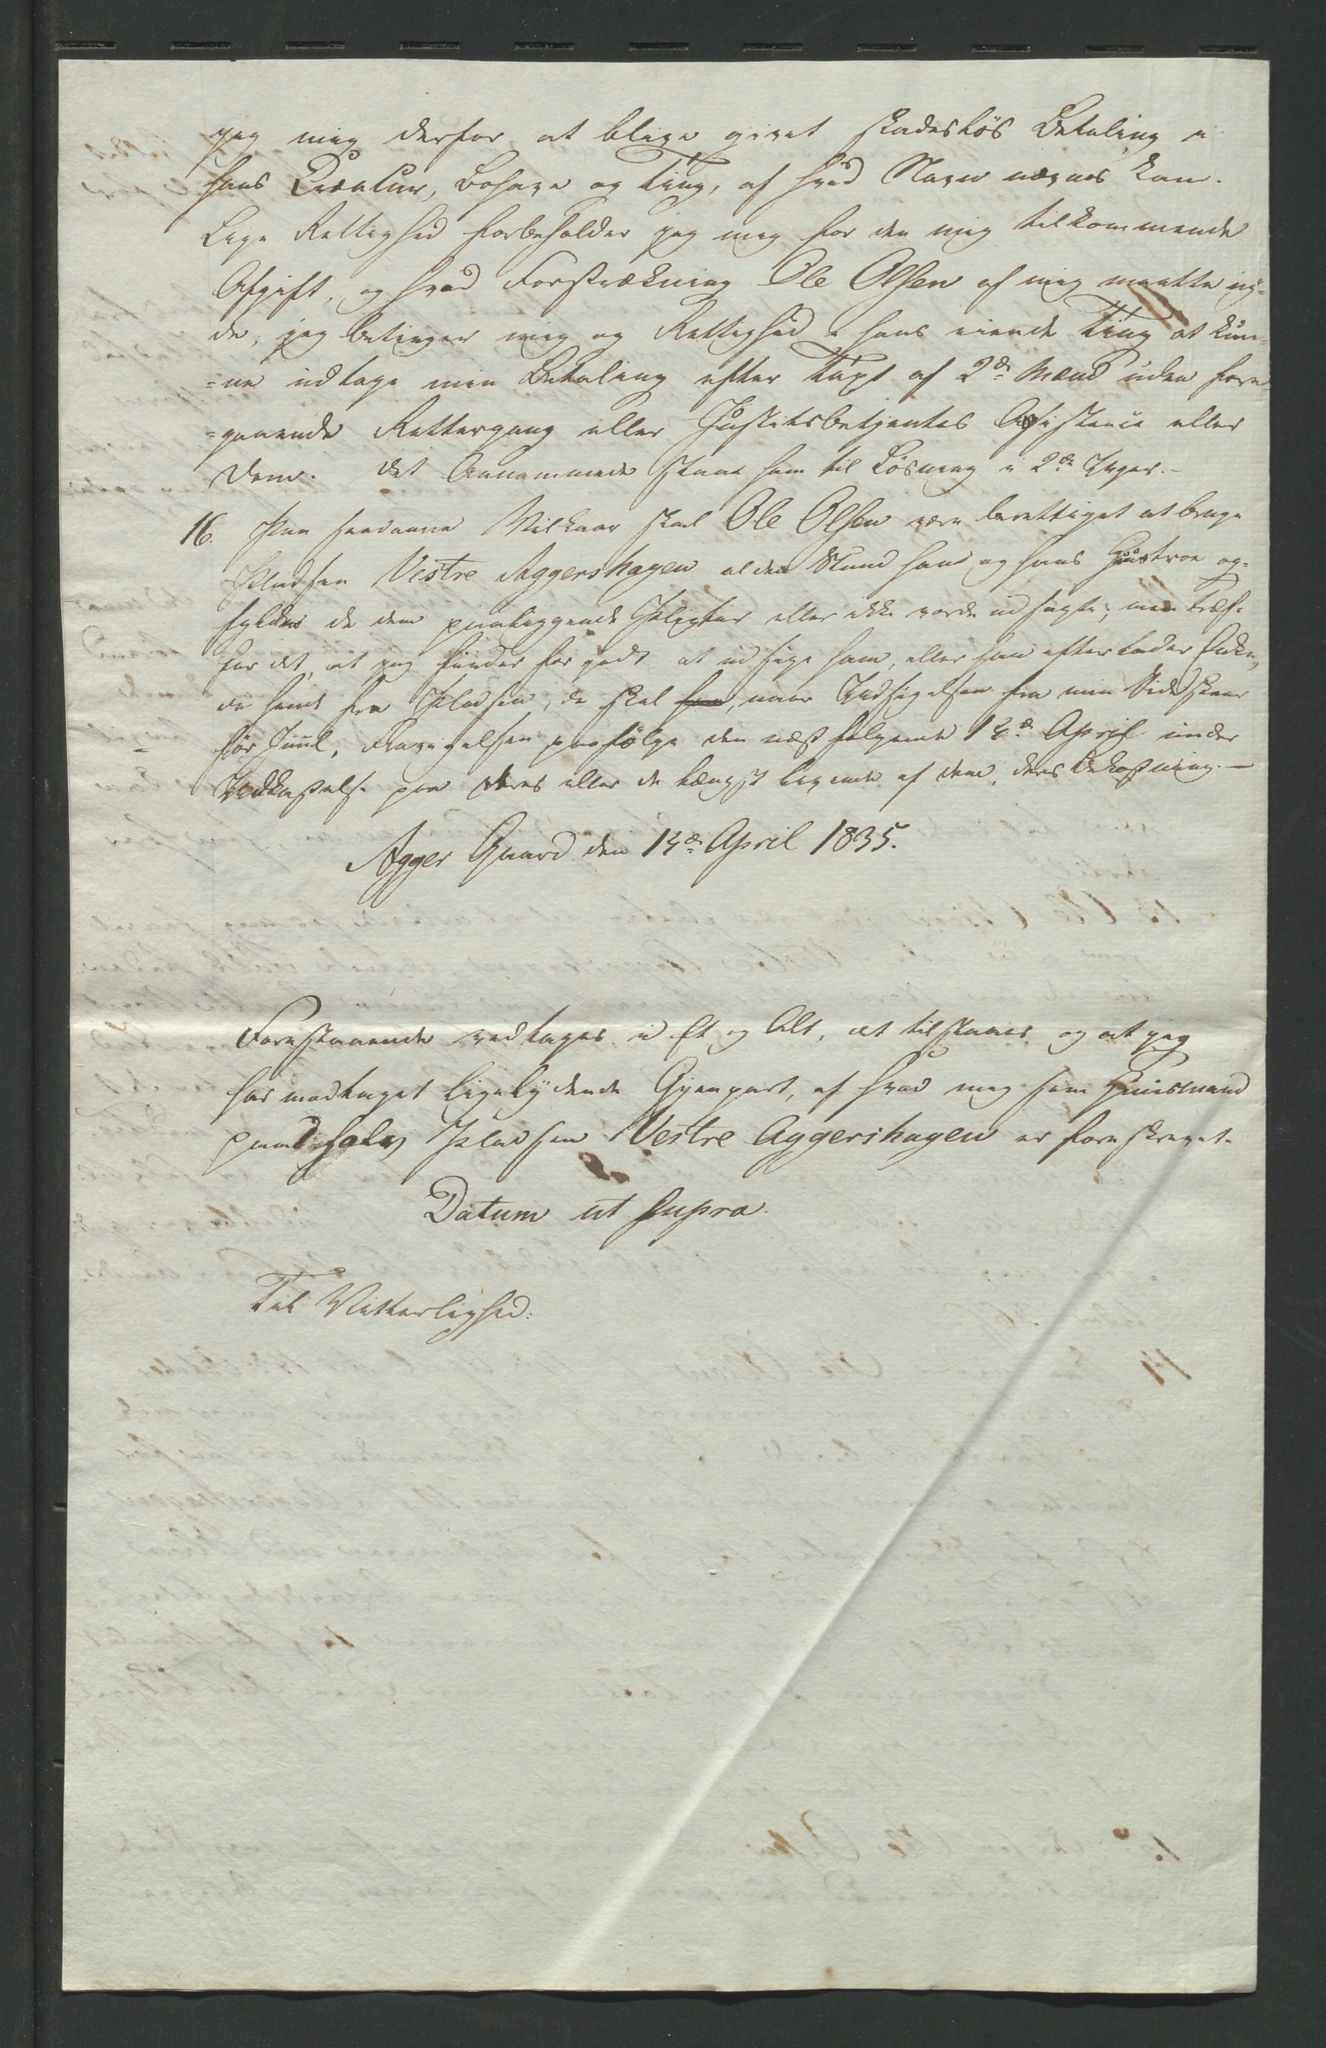 jeg mig derfor at blive givet skadesløs Betaling i
hans Creatur, Bohave og Ting, af hvad Navn nævnes kan.
Lige Rettighed forbeholder jeg mig for den mig tilkommende
Afgift, og hvad Forstrækning Ole Olsen af mig maatte ny-
de; jeg betinger mig og Rettighed i hans eiende Ting at kun-
=ne udtage min Betaling efter Taxt af 2de Mænd uden fore
=gaaende Rettergang eller Justitsbetjentes Assistence eller
Dom. Det Annammede staae ham til Løsning i 2de Dager.-
16. Paa saadanne Vilkaar skal Ole Olsen være berettiget at bruge
Pladsen Vestre Aggershagen al den Stund han og hans Hustroe op-
fylder de dem paaliggende Pligter eller ikke vorde udsagte; men træf-
fer det, at jeg finder for godt at udsige ham, eller han efterlader Enke,
da hende fra Pladsen, da skal naar Udsigelsen fra min Side skeer
før Juul, Fravigelsen paafølge den næstfølgende 14de April under
Udkastelse paa deres eller de længst levende af dem, deres Bekostning.-
Agger Gaard den 14de April 1835.
Forestaaende vedtages i Et og Alt, det tilstaaes og at jeg
har modtaget ligelydende Gjenpart, af hvad meg som Huusmand
paa Pladsen Vestre Aggershagen er foreskrevet.
Datum ut supra.
Til Vitterlighed: